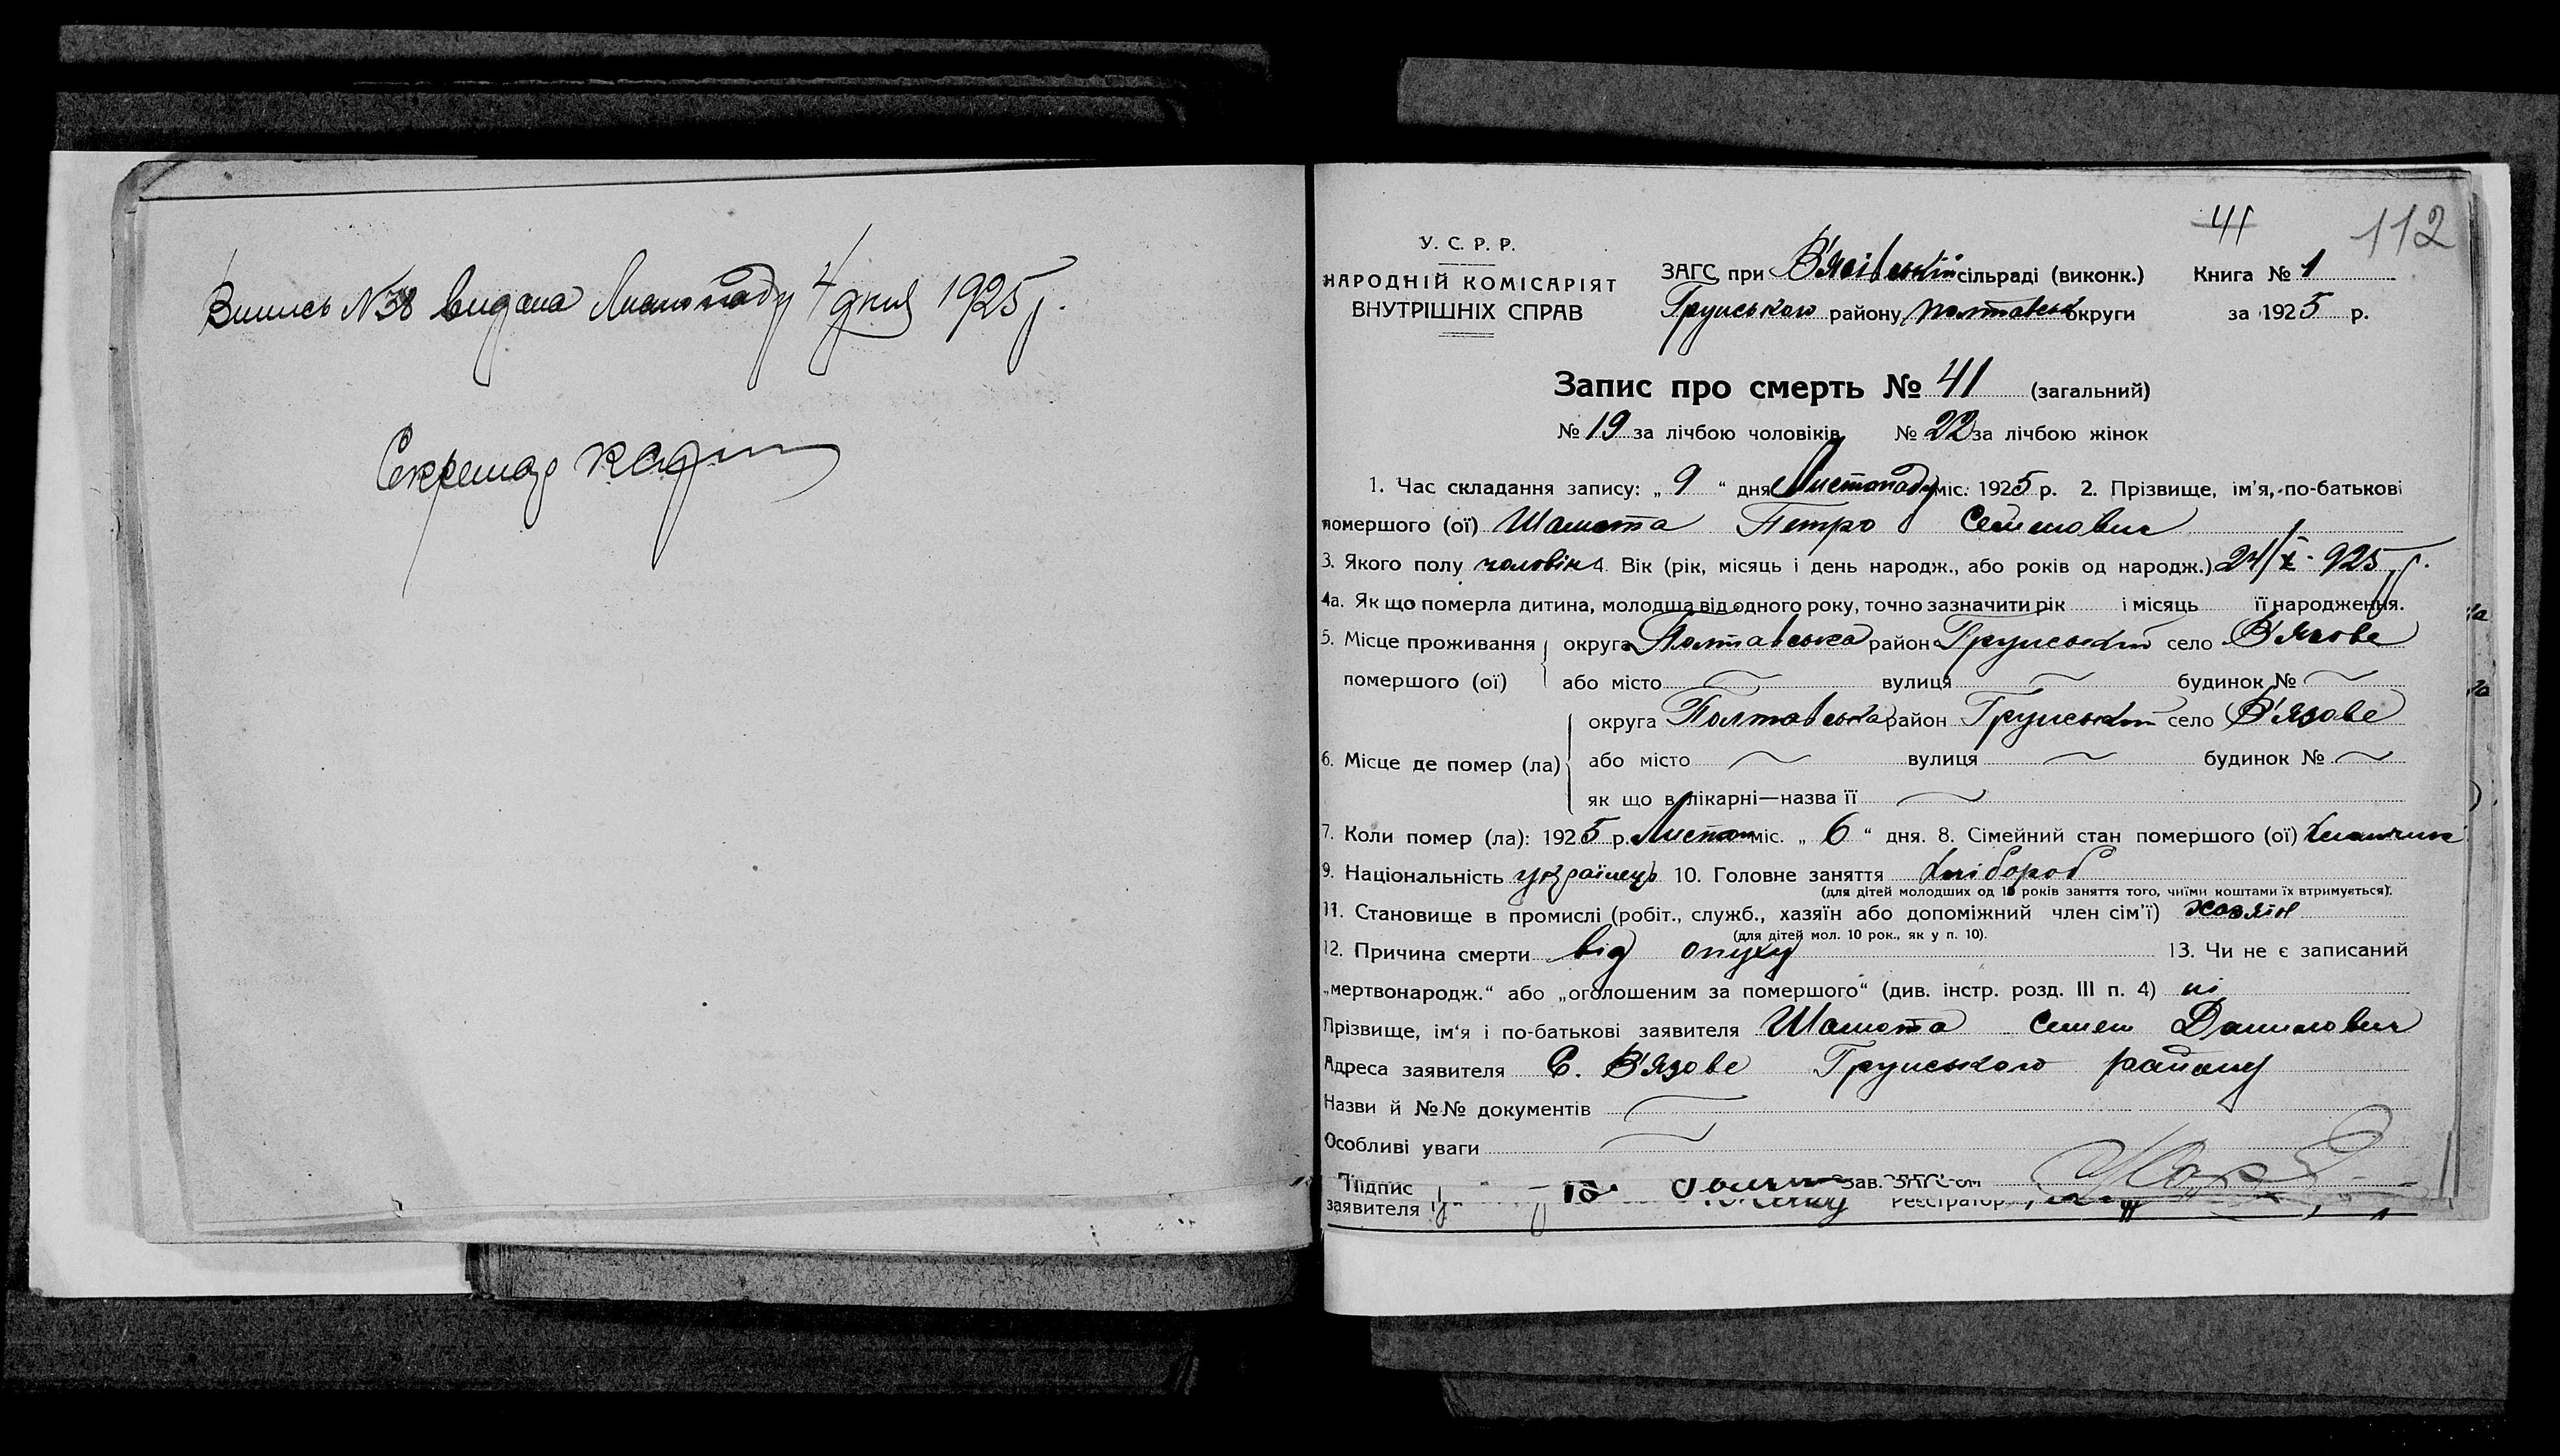 Випись №38 видана Листопаду 4 дня 1925 р.
Секретар
41
112
У. С. Р. Р.
НАРОДНІЙ КОМІСАРІЯТ
ВНУТРІШНІХ СПРАВ
ЗАГС при В'язівській сільраді (виконк.) Книга № 1
Грунського району, Полтавськ округи за 1925 р.
Запис про смерть № 41 (загальний)
№ 19 за лічбою чоловіків № 22 за лічбою жінок
1. Час складання запису: „ 9 “ дня Листопаду міс. 1925 р. 2. Прізвище, ім'я, по-батькові
помершого (ої) Шамота Петро Семенович
3. Якого полу чоловік 4. Вік (рік, місяць і день народж., або років од народж.) 24/X 925 р.
4а. Як що померла дитина, молодша від одного року, точно зазначити рік і місяць її народження.
5. Місце проживання округа Полтавська район Грунський село В'язове
помершого (ої) або місто вулиця будинок №
округа Полтавська район Грунський село В'язове
6. Місце де помер (ла) або місто вулиця будинок №
як що в лікарні—назва її
7. Коли помер (ла): 1925 р. Листоп міс. „ 6 “ дня. 8. Сімейний стан помершого (ої)
9. Національність українець 10. Головне заняття хлібороб
(для дітей молодших од 10 років заняття того, чиїми коштами їх втримується).
11. Становище в промислі (робіт., служб., хазяїн або допоміжний член сім'ї) хазяїн
(для дітей мол. 10 рок., як у п. 10).
12. Причина смерти від опуху 13. Чи не є записаний
„мертвонародж.“ або „оголошеним за помершого“ (див. інстр. розд. III п. 4) ні
Прізвище, ім'я і по-батькові заявителя Шамота Семен Данилович
Адреса заявителя С. В'язове Грунського району
Назви й №№ документів
Особливі уваги
Підпис Зав. ЗАГС'ом
заявителя Реєстратор